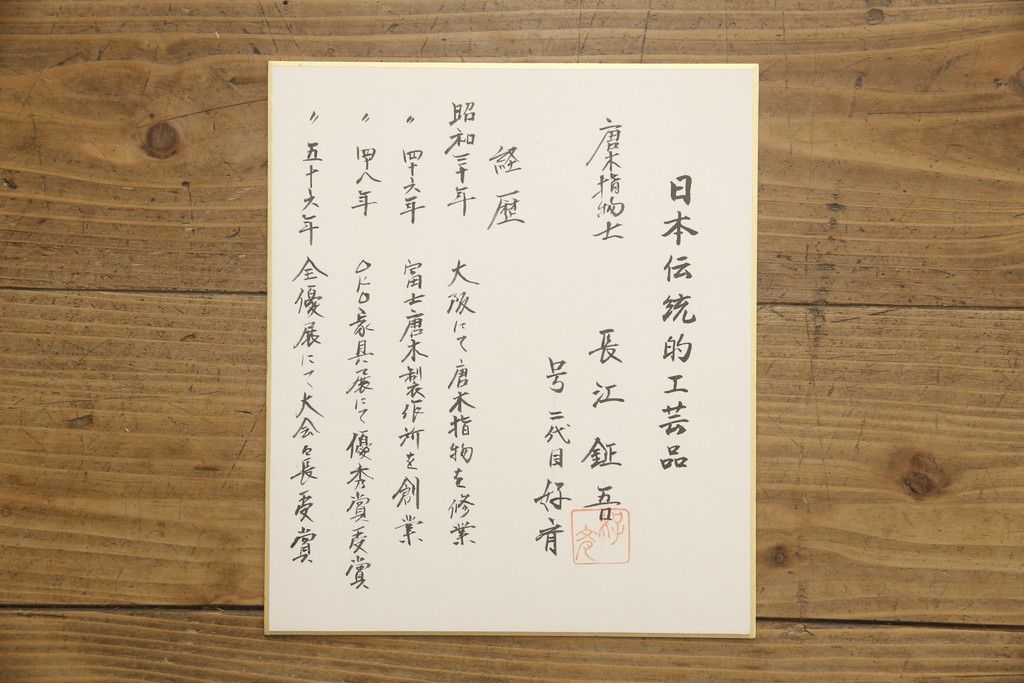 日本伝統的工芸品
唐木指物士
長江鉦吾
号二代目好斉
経歴
昭和三十年 大阪にて唐木指物を修業
〃 四十六年 富士唐木製作所を創業
〃 四十八年 家具展にて優秀賞受賞
〃 五十六年 全優展にて大会々長受賞